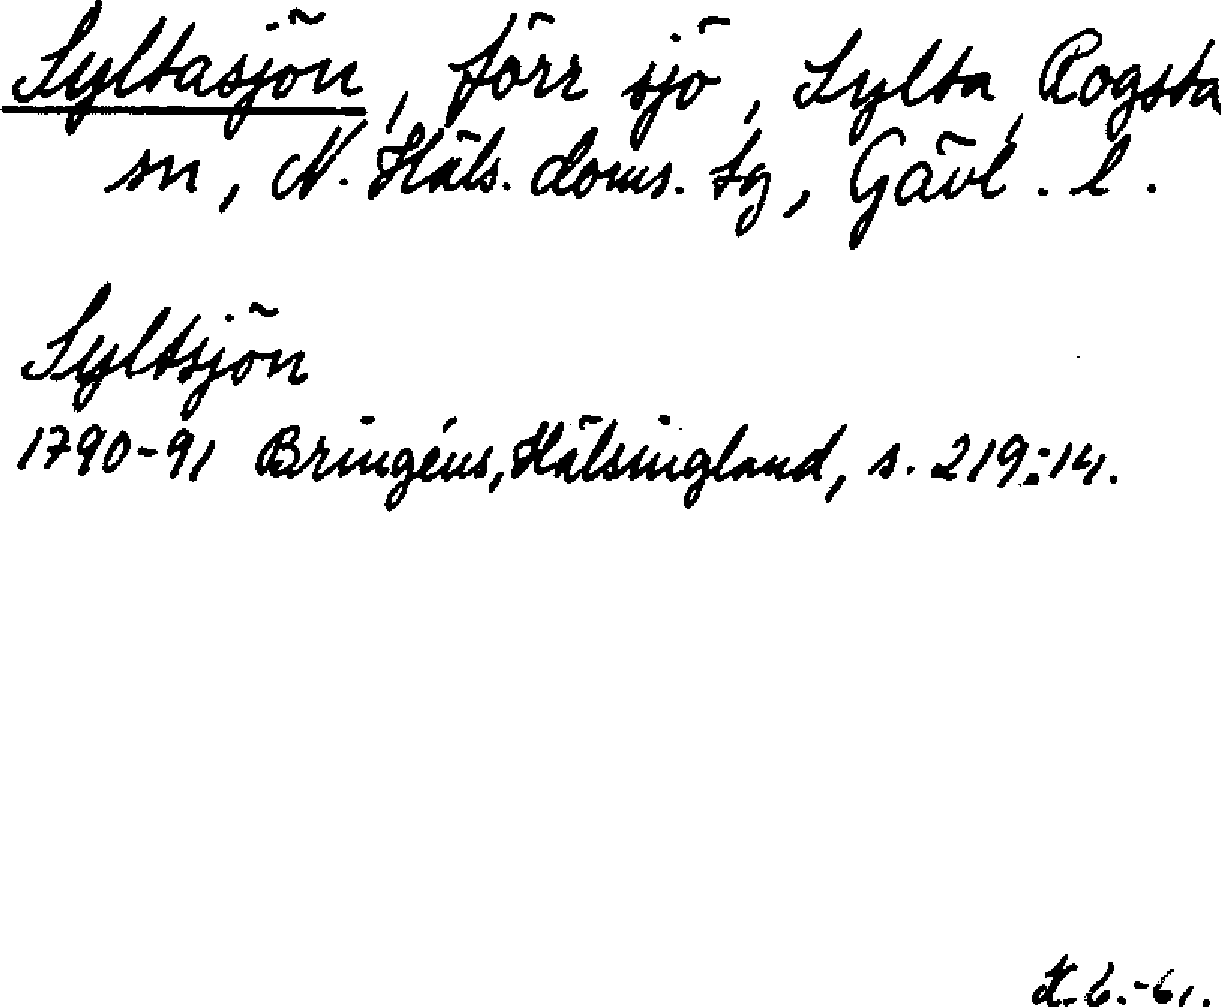 Syltasjön, förr sjö, Sylta, Rogsta
sn, N. Häls. doms. tg, Gävl. l.
Syltsjön
1790-91 Bringéus, Hälsingland, s. 219:14.
K.G.-61.